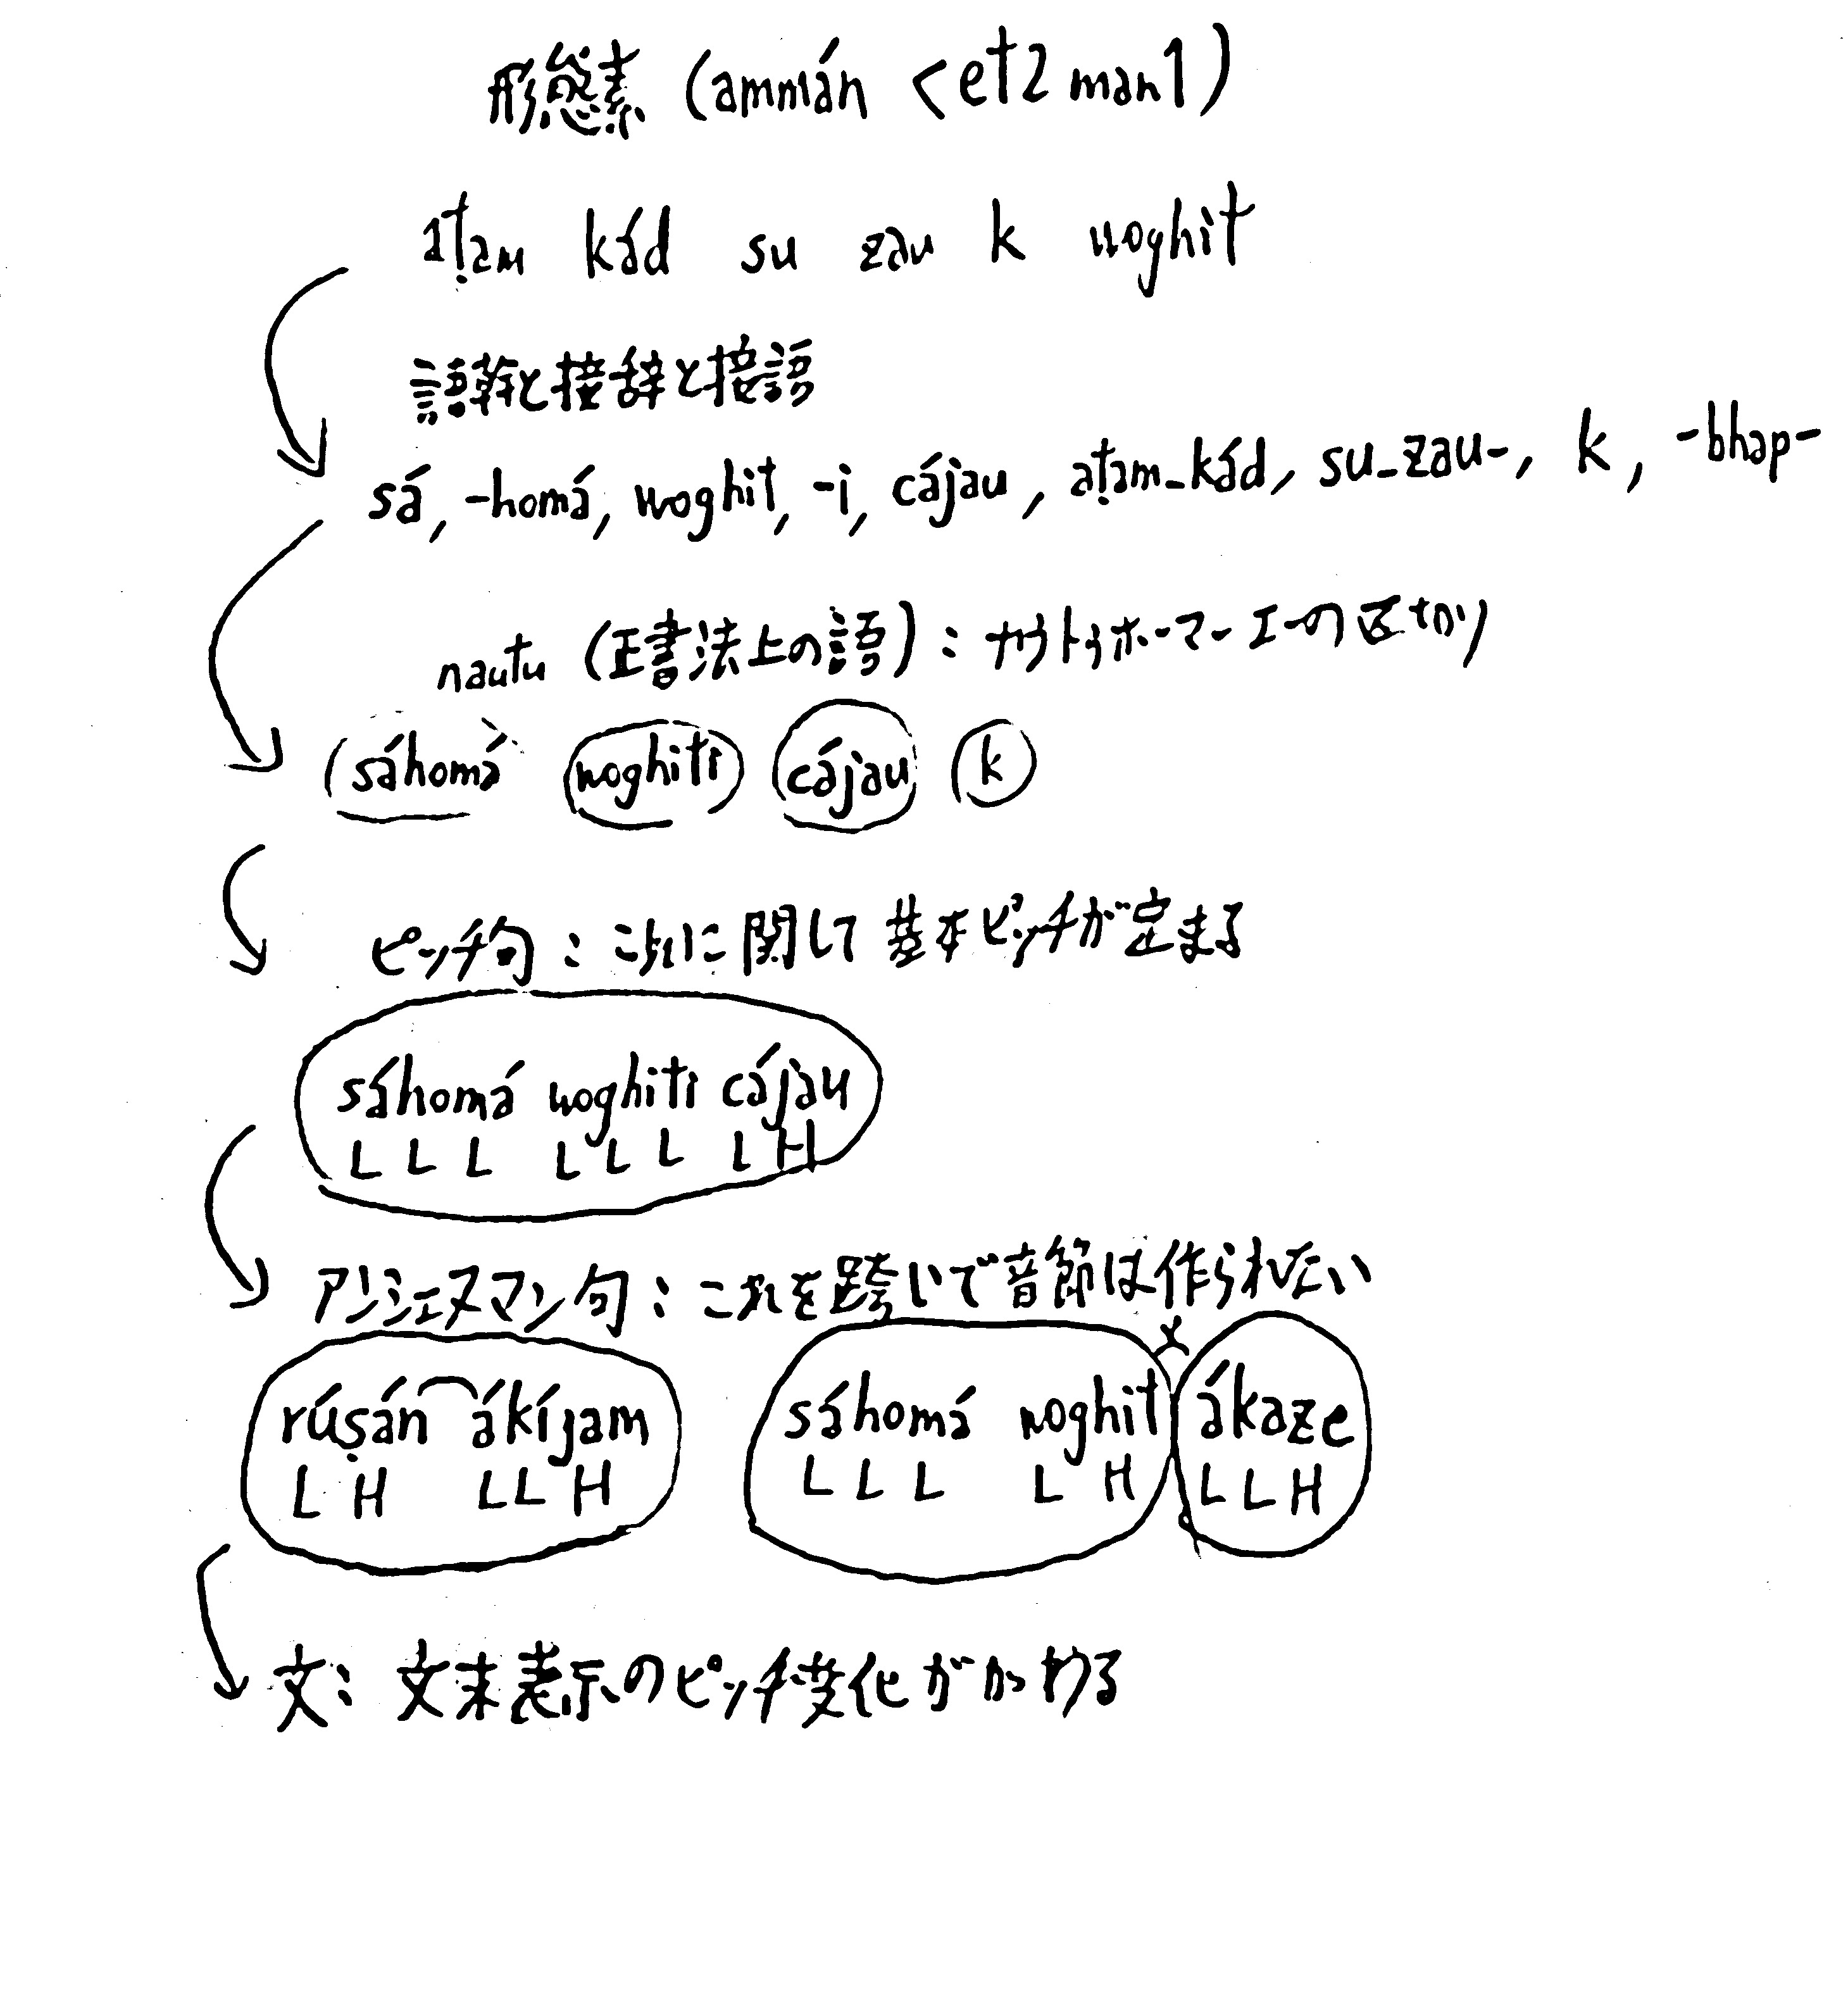 形態素 (ammán < et2 man1)
aṭam kád su zau k woghit
語幹と接辞と接語
sá, -homá, woghit, -i, cájau, aṭam_kád, su_zau-, k, -bhap-
nautu (正書法上の語) : カウトゥホーマーエーの区切り
sáhomá woghiti cájau k
ピッチ句 : これに関して基本ピッチが定まる
sáhomá woghiti cájau
L L L L L L L H
アンシェヌマン句 : これを跨いで音節は作られない
rúṣán ákíjam sáhomá woghit ákaze
L H L L H L L L L H L L H
文 : 文末表示のピッチ変化がかかわる